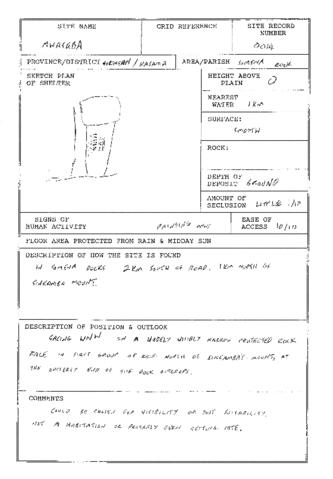 SITE NAME
GRID REFERENCE
SITE RECORD NUMBER
PROVINCE/DISTRICT
AREA/PARISH SIMENA ROCK
SKETCH PLAN
OF SHELTER
HEIGHT ABOVE
PLAIN O
NEAREST
WATER 1 KM
SURFACE:
SMOOTH
ROCK:
DEPTH OF
DEPOSIT GROUND
AMOUNT OF
SECLUSION LITTLE 1/10
SIGNS OF
HUMAN ACTIVITY PAINTING ONLY
EASE OF
ACCESS 10/10
FLOOR AREA PROTECTED FROM RAIN & MIDDAY SUN
DESCRIPTION OF HOW THE SITE IS FOUND
IN ROCKS 2KM SOUTH OF ROAD. 1KM NORTH OF
MOUNT.
DESCRIPTION OF POSITION & OUTLOOK
FACING WNW ON A WIDELY VISIBLY NARROW PROTECTED ROCK
FACE IN FIRST GROUP OF ROCK NORTH OF MOUNT, AT
THE END OF THE ROCK OUTCROPS.
COMMENTS
COULD BE CHOSEN FOR VISIBILITY OR JUST SUITABILITY.
NOT A HABITATION OR PROBABLY EVEN SITE.